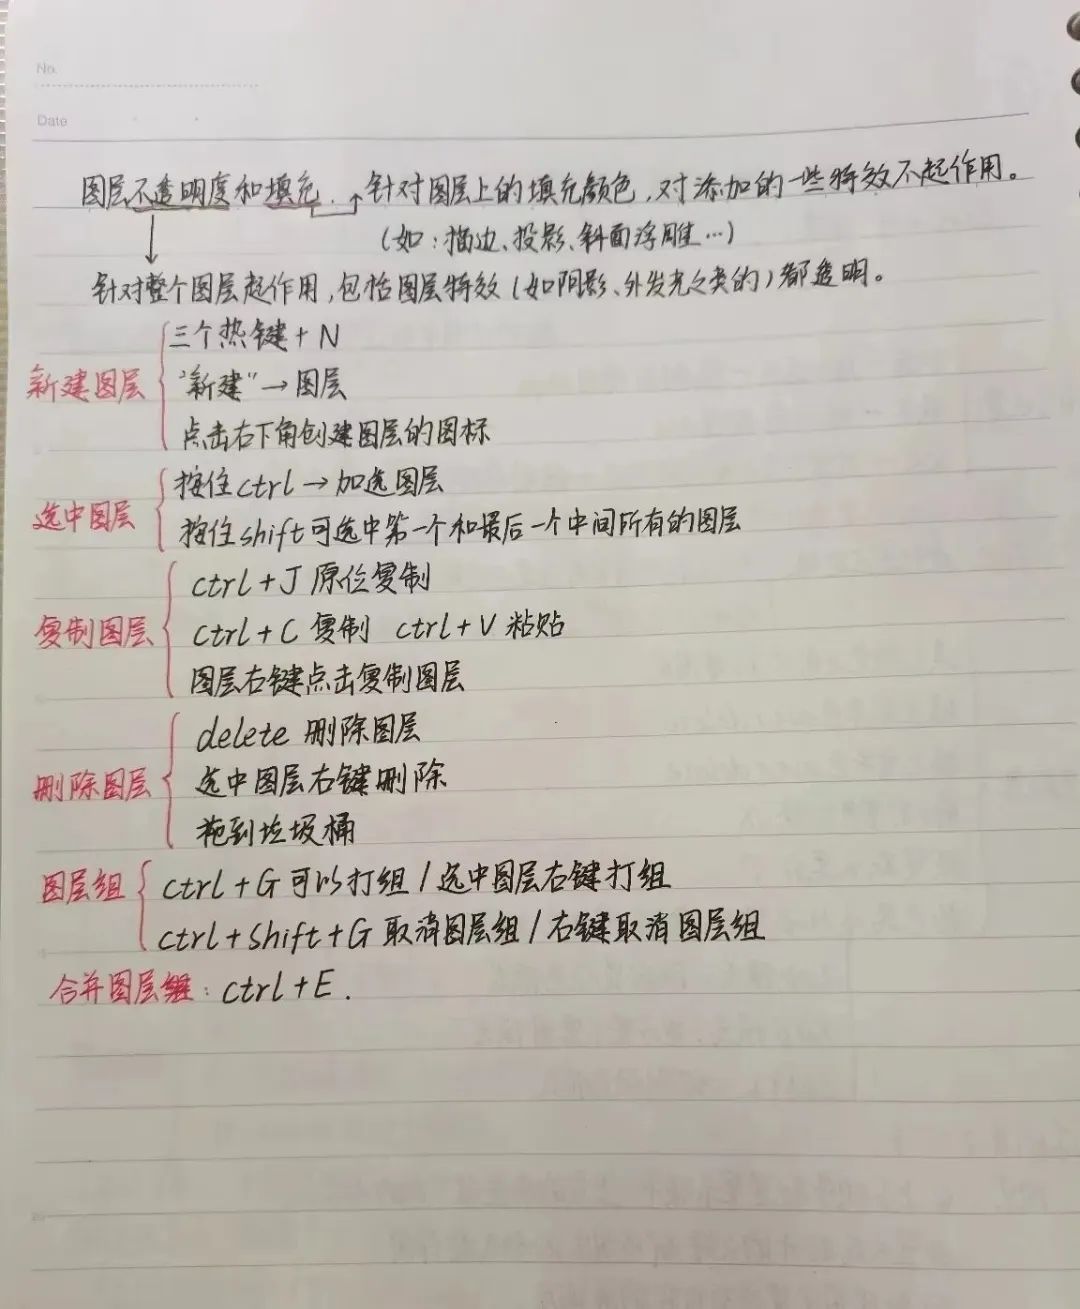 No.
Date
图层不透明度和填充. → 针对图层上的填充颜色,对添加的一些特效不起作用。
(如:描边、投影、斜面浮雕…)
针对整个图层起作用,包括图层特效(如阴影、外发光之类的)都透明。
三个热键+N
新建图层 "新建"→图层
点击右下角创建图层的图标
按住ctrl→加选图层
选中图层
按住shift可选中第一个和最后一个中间所有的图层
ctrl+J 原位复制
复制图层 ctrl+C 复制 ctrl+V 粘贴
图层右键点击复制图层
delete 删除图层
删除图层 选中图层右键删除
拖到垃圾桶
图层组 ctrl+G可以打组/选中图层右键打组
ctrl+shift+G取消图层组/右键取消图层组
合并图层组:ctrl+E.